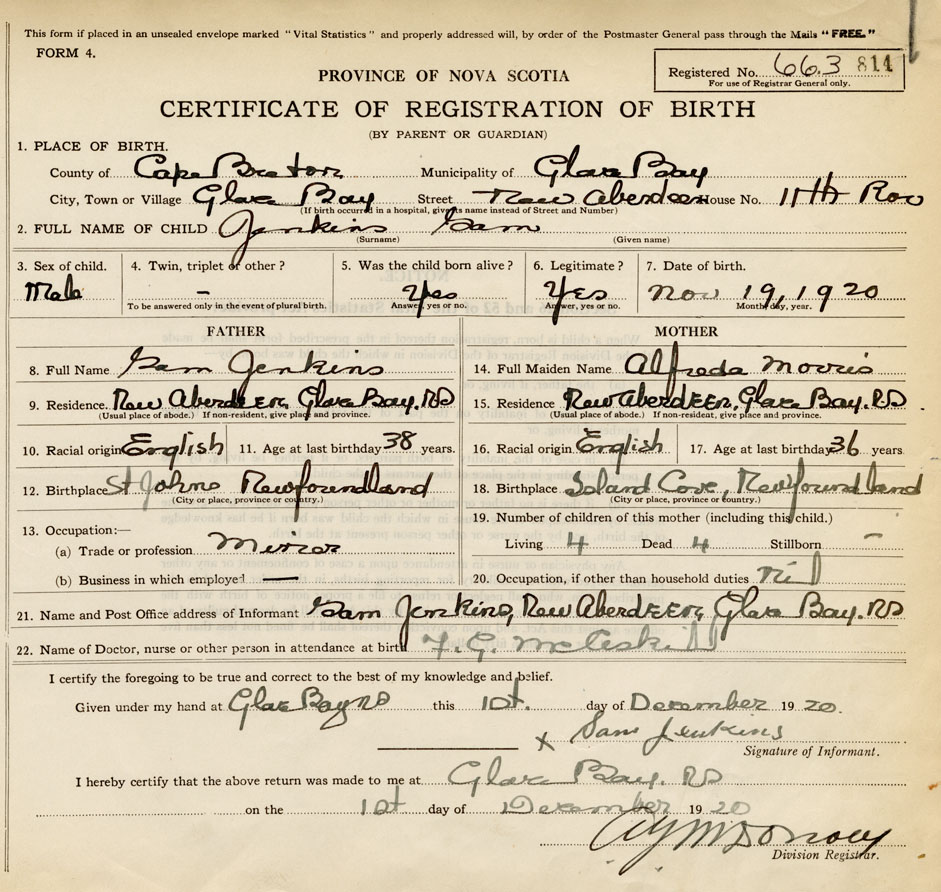 This form if placed in an unsealed envelope marked "Vital Statistics" and properly addressed will, by order of the Postmaster General pass through the Mails "FREE."
FORM 4.
Registered No. 663 814
For use of Registrar General only.
PROVINCE OF NOVA SCOTIA
CERTIFICATE OF REGISTRATION OF BIRTH
(BY PARENT OR GUARDIAN)
1. PLACE OF BIRTH.
County of Cape Breton Municipality of Glace Bay
City, Town or Village Glace Bay Street New Aberdeen House No. 11th Row
(If birth occurred in a hospital, give its name instead of Street and Number)
2. FULL NAME OF CHILD Jenkins Sam
(Surname) (Given name)
3. Sex of child. 4. Twin, triplet or other? 5. Was the child born alive? 6. Legitimate? 7. Date of birth.
Male - Yes Yes Nov 19, 1920
To be answered only in the event of plural birth. Answer, yes or no. Answer, yes or no. Month, day, year.
FATHER MOTHER
8. Full Name Sam Jenkins 14. Full Maiden Name Alfreda Morris
9. Residence. New Aberdeen, Glace Bay. NS 15. Residence New Aberdeen, Glace Bay. NS
(Usual place of abode.) If non-resident, give place and province. (Usual place of abode.) If non-resident, give place and province.
10. Racial origin English 11. Age at last birthday 38 years. 16. Racial origin English 17. Age at last birthday 36 years
12. Birthplace St Johns Newfoundland 18. Birthplace Island Cove, Newfoundland
(City or place, province or country.) (City or place, province or country.)
13. Occupation:— 19. Number of children of this mother (including this child.)
(a) Trade or profession Miner Living 4 Dead 4 Stillborn -
(b) Business in which employed — 20. Occupation, if other than household duties Nil
21. Name and Post Office address of Informant Sam Jenkins, New Aberdeen, Glace Bay. NS
22. Name of Doctor, nurse or other person in attendance at birth F. G.
I certify the foregoing to be true and correct to the best of my knowledge and belief.
Given under my hand at Glace Bay NS this 1st. day of December 19 20.
x Sam Jenkins
Signature of Informant.
I hereby certify that the above return was made to me at Glace Bay. NS
on the 1st day of December 19 20
Division Registrar.